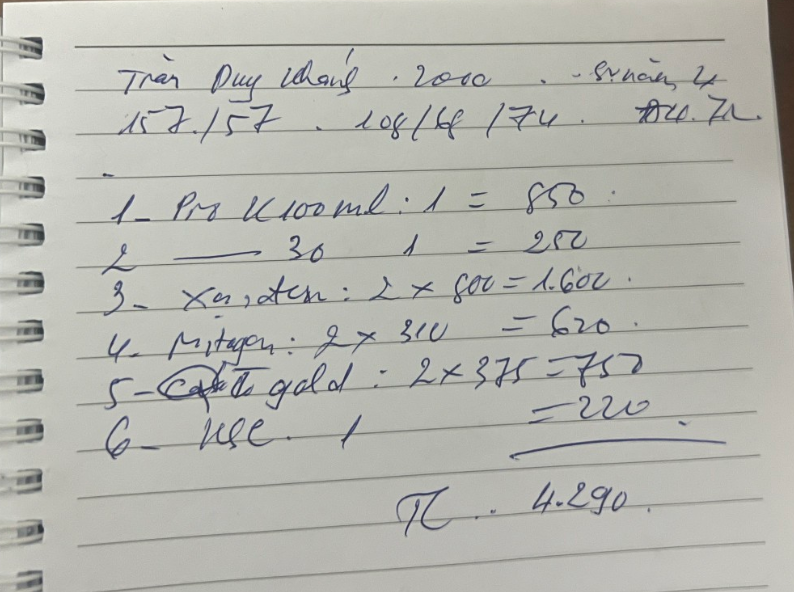 Trần Duy Khánh . 2000 . -
157./57 . 108/68 /74 .
-
1- Pro K 100ml : 1 = 850 .
2 —— 30 1 = 250
3- : 2 × 800 = 1.600 .
4- Mitagen : 2 × 310 = 620 .
5- gold : 2 × 375 = 750
6- KSC . 1 = 220 .
TC .. 4.290 .